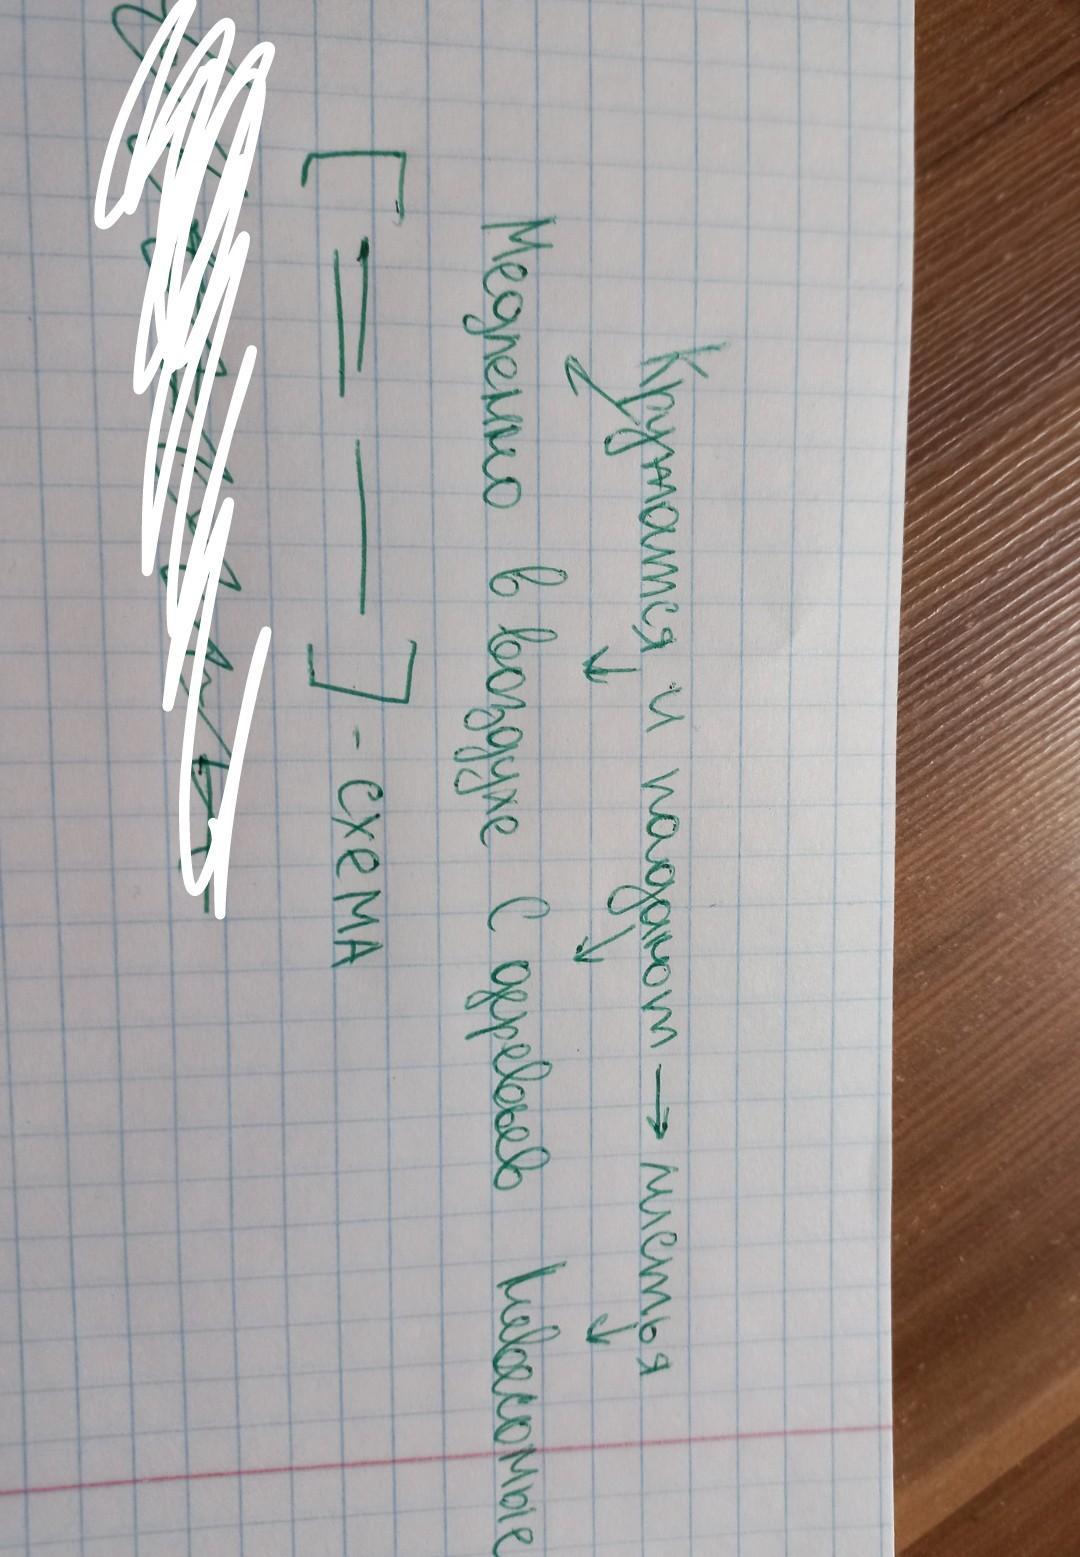 Кружатся и падают → листья
Медленно в воздухе с деревьев невесомые
[= —] - схема